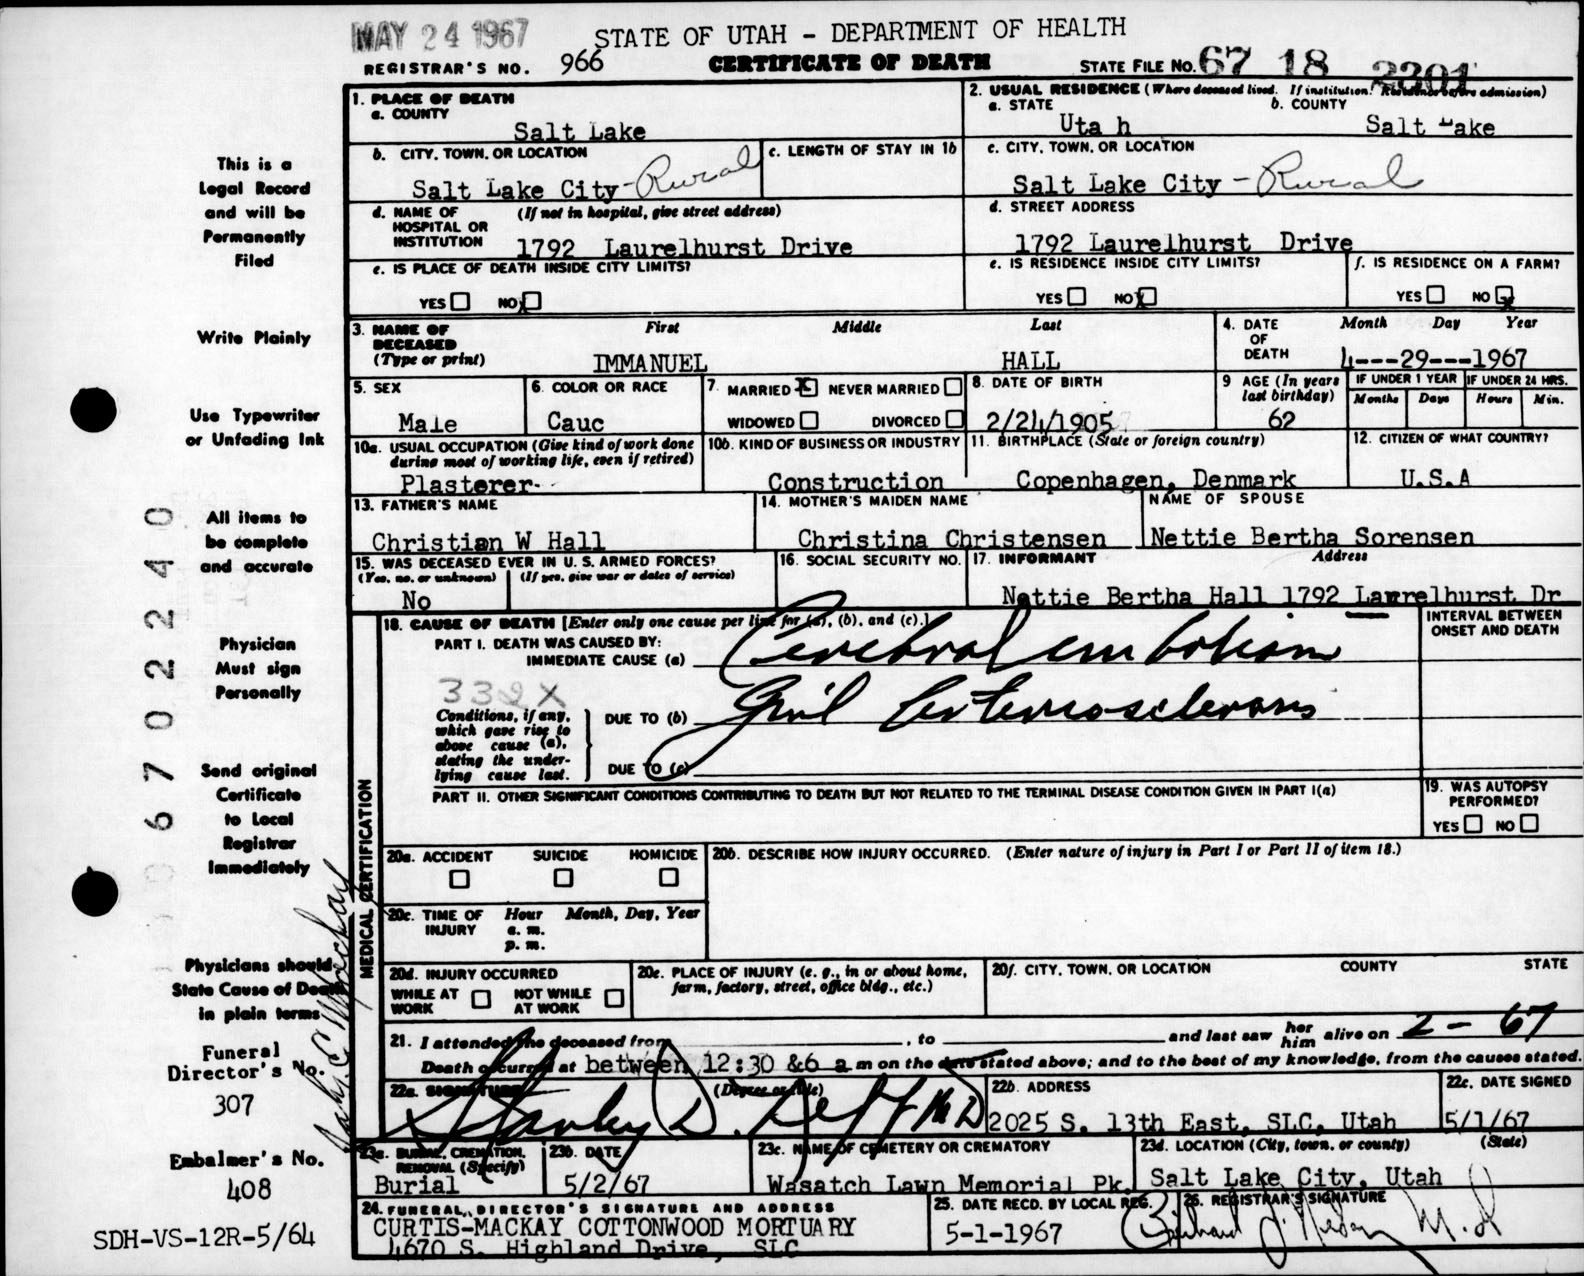 MAY 24 1967
STATE OF UTAH - DEPARTMENT OF HEALTH
REGISTRAR'S NO. 966 CERTIFICATE OF DEATH STATE FILE NO. 67 18 2201
1. PLACE OF DEATH
a. COUNTY
Salt Lake
2. USUAL RESIDENCE (Where deceased lived. If institution: Residence before admission)
a. STATE b. COUNTY
Uta h Salt Lake
b. CITY, TOWN, OR LOCATION
Salt Lake City - Rural
c. LENGTH OF STAY IN 1b
c. CITY, TOWN, OR LOCATION
Salt Lake City - Rural
d. NAME OF HOSPITAL OR INSTITUTION (If not in hospital, give street address)
1792 Laurelhurst Drive
d. STREET ADDRESS
1792 Laurelhurst Drive
e. IS PLACE OF DEATH INSIDE CITY LIMITS?
YES NO X
e. IS RESIDENCE INSIDE CITY LIMITS?
YES NO X
f. IS RESIDENCE ON A FARM?
YES NO X
3. NAME OF DECEASED (Type or print)
First Middle Last
IMMANUEL HALL
4. DATE OF DEATH
Month Day Year
4---29---1967
5. SEX
Male
6. COLOR OR RACE
Cauc
7. MARRIED X NEVER MARRIED
WIDOWED DIVORCED
8. DATE OF BIRTH
2/24/1905
9 AGE (In years last birthday)
62
IF UNDER 1 YEAR
Months Days
IF UNDER 24 HRS.
Hours Min.
10a. USUAL OCCUPATION (Give kind of work done during most of working life, even if retired)
Plasterer
10b. KIND OF BUSINESS OR INDUSTRY
Construction
11. BIRTHPLACE (State or foreign country)
Copenhagen, Denmark
12. CITIZEN OF WHAT COUNTRY?
U.S.A
13. FATHER'S NAME
Christian W Hall
14. MOTHER'S MAIDEN NAME
Christina Christensen
NAME OF SPOUSE
Nettie Bertha Sorensen
15. WAS DECEASED EVER IN U. S. ARMED FORCES?
(Yes, no, or unknown) (If yes, give war or dates of service)
No
16. SOCIAL SECURITY NO.
17. INFORMANT Address
Nettie Bertha Hall 1792 Laurelhurst Dr
MEDICAL CERTIFICATION
18. CAUSE OF DEATH [Enter only one cause per line for (a), (b), and (c).]
INTERVAL BETWEEN ONSET AND DEATH
PART I. DEATH WAS CAUSED BY:
IMMEDIATE CAUSE (a) Cerebral embolism
332X
Conditions, if any, which gave rise to above cause (a), stating the underlying cause last.
DUE TO (b) Gen'l Arteriosclerosis
DUE TO (c)
PART II. OTHER SIGNIFICANT CONDITIONS CONTRIBUTING TO DEATH BUT NOT RELATED TO THE TERMINAL DISEASE CONDITION GIVEN IN PART I(a)
19. WAS AUTOPSY PERFORMED?
YES NO
20a. ACCIDENT SUICIDE HOMICIDE
20b. DESCRIBE HOW INJURY OCCURRED. (Enter nature of injury in Part I or Part II of item 18.)
20c. TIME OF INJURY Hour Month, Day, Year
a. m.
p. m.
20d. INJURY OCCURRED
WHILE AT WORK NOT WHILE AT WORK
20e. PLACE OF INJURY (e. g., in or about home, farm, factory, street, office bldg., etc.)
20f. CITY, TOWN, OR LOCATION COUNTY STATE
21. I attended the deceased from , to and last saw her him alive on 2 - 67
Death occurred at between 12:30 &6 a m on the date stated above; and to the best of my knowledge, from the causes stated.
22a. SIGNATURE (Degree or title)
Stanley D. Neff MD
22b. ADDRESS
2025 S. 13th East, SLC, Utah
22c. DATE SIGNED
5/1/67
23a. BURIAL, CREMATION, REMOVAL (Specify)
Burial
23b. DATE
5/2/67
23c. NAME OF CEMETERY OR CREMATORY
Wasatch Lawn Memorial Pk.
23d. LOCATION (City, town, or county) (State)
Salt Lake City, Utah
24. FUNERAL DIRECTOR'S SIGNATURE AND ADDRESS
CURTIS-MACKAY COTTONWOOD MORTUARY
4670 S. Highland Drive, SLC
25. DATE RECD. BY LOCAL REG.
5-1-1967
26. REGISTRAR'S SIGNATURE
This is a
Legal Record
and will be
Permanently
Filed
Write Plainly
Use Typewriter
or Unfading Ink
All items to
be complete
and accurate
Physician
Must sign
Personally
Send original
Certificate
to Local
Registrar
Immediately
Physicians should
State Cause of Death
in plain terms
Funeral
Director's No.
307
Embalmer's No.
408
SDH-VS-12R-5/64